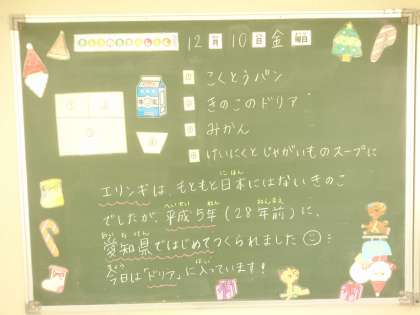 きょうのきゅうしょく 12月 10日 金曜日
こくとうパン
きのこのドリア
みかん
けいにくとじゃがいものスープに
エリンギは、もともと日本にはないきのこ
でしたが、平成5年(28年前)に、
愛知県ではじめてつくられました
今日は「ドリア」に入っています!